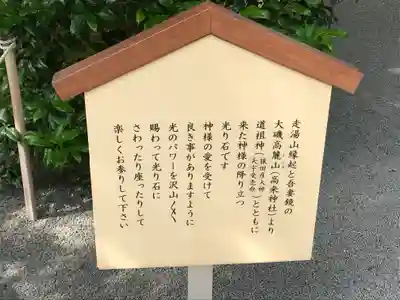 走湯山縁起と吾妻鏡の
大磯高麗山(高来神社)より
道祖神(猿田彦大神・天宇受売命)とともに
来た神様の降り立つ
光り石です
神様の愛を受けて
良き事がありますように
光のパワーを沢山〱
賜わって光り石に
さわったり座ったりして
楽しくお参りして下さい